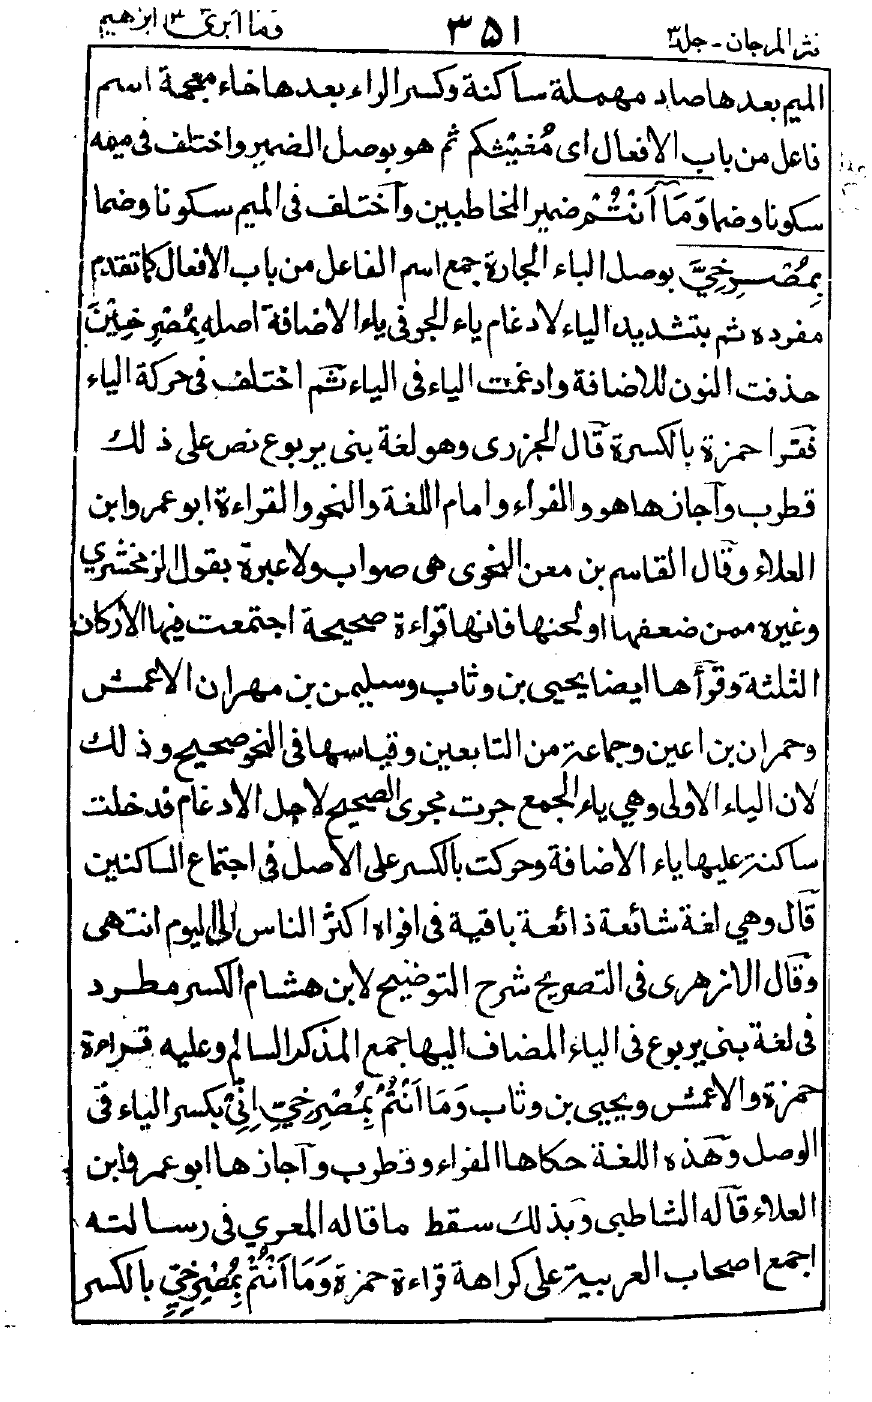 نثر المرجان - جلد ٣ ٣٥١ وما ابرئ ١٣ ابرٰهيم
الميم بعدها صاد مهملة ساكنة وكسر الراء بعدها خاء معجمة اسم
فاعل من باب الافعال اى مُغيثكم ثم هو بوصل الضمير واختلف فى ميمه
سكونا وضما وَمَآ اَنْتُمْ ضمير المخاطبين وآختلف فى الميم سكونا وضما
بِمُصْرِخِيَّ بوصل الباء الجارة جمع اسم الفاعل من باب الافعال كما تقدم
مفرده ثم بتشديد الياء لادغام ياء الجر فى ياء الاضافة اصله بِمُصْرِخِيْنَ
حذفت النون للاضافة وادغمت الياء فى الياء ثم اختلف فى حركة الياء
فقرا حمزة بالكسرة قآل الجزرى وهو لغة بنى يربوع نص على ذلك
قطرب وآجازها هو والفراء وامام اللغة والنحو والقراءة ابو عمرو ابن
العلاء وقآل القاسم بن معن النحوى هى صواب ولا عبرة بقول الزمخشري
وغيره ممن ضعفها او لحنها فانها قراءة صحيحة اجتمعت فيها الأركان
الثلثة وقرأها ايضا يحيى بن وثاب وسليمن بن مهران الاعمش
وحمران بن اعين وجماعة من التابعين وقياسها فى النحو صحيح وذلك
لان الياء الاولى وهي ياء الجمع جرت مجرى الصحيح لاجل الادغام فدخلت
ساكنة عليها ياء الاضافة وحركت بالكسر على الأصل فى اجتماع الساكنين
قآل وهي لغة شائعة ذائعة باقية فى افواه اكثر الناس الى اليوم انتهى
وقآل الازهرى فى التصريح شرح التوضيح لابن هشام الكسر مطرد
فى لغة بنى يربوع فى الياء المضاف اليها جمع المذكر السالم وعليه قراءة
حمزة والاعمش ويحيى بن وثاب وَمَا اَنْتُمْ بِمُصْرِخِيِّ اِنِّيْ بكسر الياء فى
الوصل وهٓذه اللغة حكاها الفراء وقطرب وآجازها ابو عمرو ابن
العلاء قآله الشاطبى وبذلك سقط ما قاله المعري فى رسالته
اجمع اصحاب العربية على كراهة قراءة حمزة وَمَا اَنْتُمْ بِمُصْرِخِيِّ بالكسر